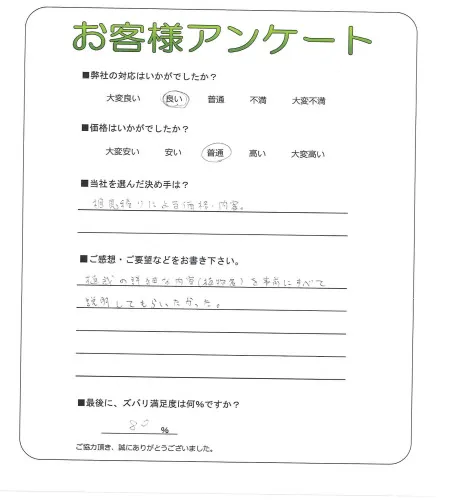 お客様アンケート
■弊社の対応はいかがでしたか？
大変良い 良い 普通 不満 大変不満
■価格はいかがでしたか？
大変安い 安い 普通 高い 大変高い
■当社を選んだ決め手は？
見積りによる価格・内容。
■ご感想・ご要望などをお書き下さい。
植栽の詳細な内容(植物名)を事前にすべて
説明してもらいたかった。
■最後に、ズバリ満足度は何％ですか？
80 ％
ご協力頂き、誠にありがとうございました。